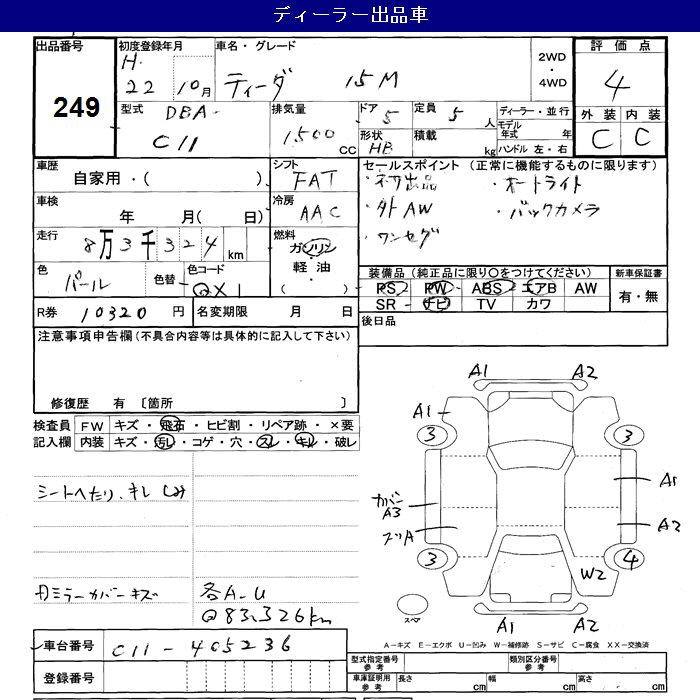 ディーラー出品車
出品番号
249
初度登録年月
H.
22 10月
車名・グレード
ティーダ 15M
2WD
・
4WD
評価点
4
外装 内装
C C
型式
DBA-
C11
排気量
1500 CC
ドア 5
形状 HB
定員 5 人
積載 kg
ディーラー・並行
モデル年式 年
ハンドル 左・右
車歴
自家用・( )
シフト
FAT
セールスポイント (正常に機能するものに限ります)
・ネット出品 ・オートライト
・外AW ・バックカメラ
・ワンセグ
車検
年 月( 日)
冷房
AAC
走行
8万3千324km
燃料
ガソリン
軽油・
( )
色
パール
色替
色コード
QX1
装備品(純正品に限り○をつけてください)
PS PW ABS エアB AW
SR ナビ TV カワ
新車保証書
有・無
R券 10320円
名変期限 月 日
後日品
注意事項申告欄(不具合内容等は具体的に記入して下さい)
修復歴 有 〔箇所 〕
検査員
記入欄
FW キズ・飛石・ヒビ割・リペア跡・×要
内装 キズ・汚レ・コゲ・穴・スレ・キレ・破レ
シートへたり、キレ しみ
各A-U
@83,326km
A1 A2
A1
3 3
カバー
A3
A1
A2
3 4
W2
スペア
A1 A2
A-キズ E-エクボ U-凹み W-補修跡 S-サビ C-腐食 XX-交換済
車台番号 C11-405236
登録番号
型式指定番号
参考
類別区分番号
参考
車庫証明用
参考
長さ cm 幅 cm 高さ cm